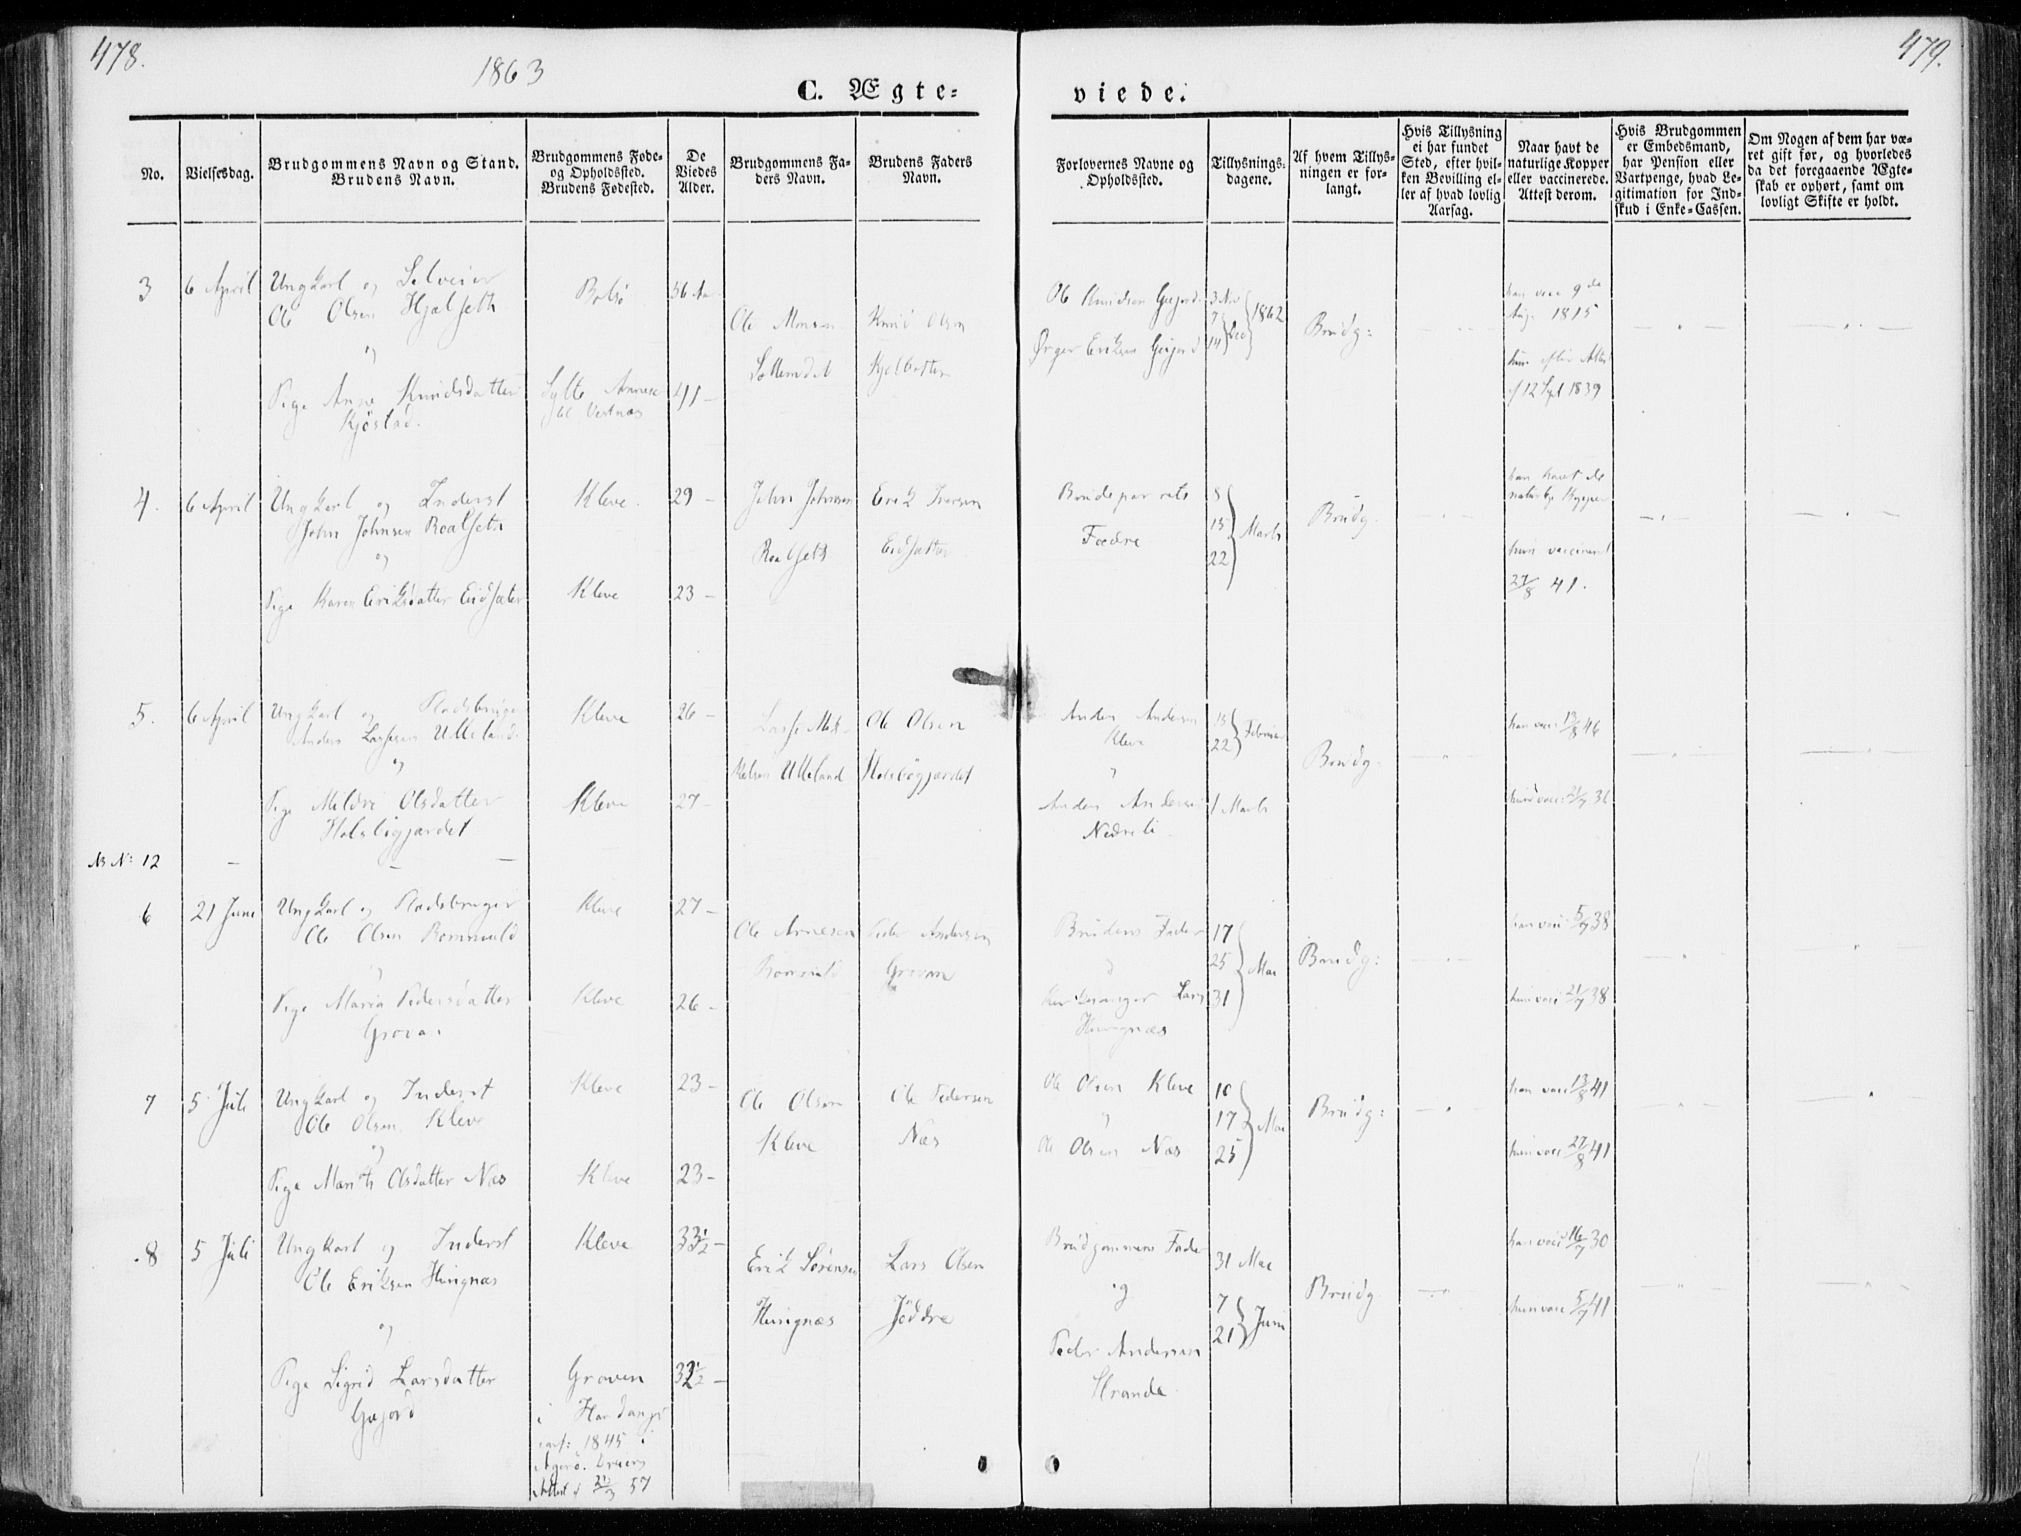 478.
1863
C. Ægte-
viede.
479.
No.
Vielsesdag.
Brudgommens Navn og Stand.
Brudens Navn.
Brudgommens Føde-
og Opholdssted.
Brudens Fødested.
De
Viedes
Alder.
Brudgommens Fa-
ders Navn.
Brudens Faders
Navn.
Forlovernes Navne og
Opholdssted.
Tillysnings-
dagene.
Af hvem Tillys-
ningen er for-
langt.
Hvis Tillysning
ei har fundet
Sted, efter hvil-
ken Bevilling el-
ler af hvad lovlig
Aarsag.
Naar havt de
naturlige Kopper
eller vaccinerede.
Attest derom.
Hvis Brudgommen
er Embedsmand,
har Pension eller
Vartpenge, hvad Le-
gitimation for Ind-
skud i Enke-Cassen.
Om Nogen af dem har væ-
ret gift før, og hvorledes
da det foregaaende Ægte-
skab er ophørt, samt om
lovligt Skifte er holdt.
3
6 April
Ungkarl og Selveier
Ole Olsen Hjelseth
og
Pige Anne Knudsdatter
Kjöstad.
Bolsö
Sylte Annex
til Vestnæs
56 Aar
41 -
Ole
Knud Olsen
Ole Knudsen Gujord
Ørger Eriksen Gujord
3 Nov
7
14
Dec
1862
Brudg:
han vacc 9 de
Aug: 1815
hun efter Attest
af 12 Sept 1839
4.
6 April
Ungkarl og Inderst
John Johnsen Roalseth
og
Pige Karen Eriksdatter Eidsæter
Kleve.
Kleve
29 -
23 -
John Johnsen
Roalseth
Erik Iversen
Eidsæter
Brudeparrets
Fædre
8
15
22
Marts
Brudg.
han havt de
naturlige Kopper
hun vaccineret
27/8 41.
5.
6 April
Ungkarl og Pladsbruger
Anders Lassesen Ulleland
og
Pige Mildri Olsdatter
Holsbögjærdet
Kleve
Kleve
26 -
27 -
Lasse Mik-
kelsen Ulleland
Ole Olsen
Holsbögjærdet
Anders Andersen
Kleve
Anders Andersen
Nedreli
15
22
Februar
1 Marts
Brudg.
han vacc 13/8 46
hun vacc 21/7 36
NB N: 12
6
21 Juni
Ungkarl og Pladsbruger
Ole Olsen Rommuld
Pige Maria Pedersdatter
Grova.
Kleve
Kleve
27 -
26 -
Ole Arnesen
Peder Andersen
Grovan
Brudens Fader
Lars
Hungnæs
17
25
31
Mai
Brudg:
han vacc 5/7 38
hun vacc 21/7 38
7
5 Juli
Ungkarl og Inderst
Ole Olsen Kleve
og
Pige Marith Olsdatter Næs
Kleve
Kleve
23 -
23 -
Ole Olsen
Kleve
Ole Pedersen
Næs
Ole Olsen Kleve
Ole Olsen Næs
10
17
25
Mai
Brudg:
han vacc 13/8 41
hun vacc 27/8 41
8
5 Juli
Ungkarl og Inderst
Ole Eriksen Hungnæs
og
Pige Sigrid Larsdatter
Gujord
Kleve
Graven
i Hardanger
conf: 1845 i
33½ -
32½ -
Erik Sörensen
Hungnæs
Lars Olsen
Jöddre
Brudgommens Fader
og
Peder Andersen
Strande
31 Mai
7
21
Juni
Brudg.
han vacc 16/7 30
hun vacc 5/7 41